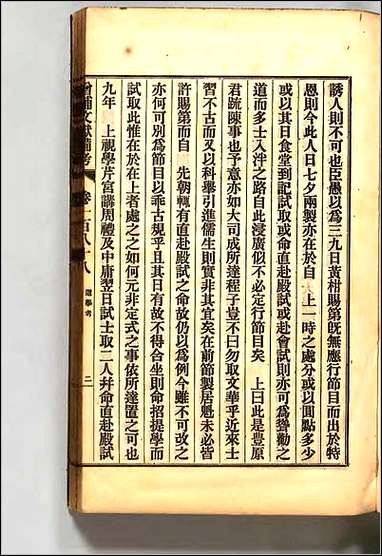 誘人則不可也臣愚以爲三九日黃柑賜第旣無應行節目而出於特
恩則今此人日七夕兩製亦在於自 上一時之處分或以圓點多少
或以其日食堂到記試取或命直赴殿試或赴會試則亦可爲聳勸之
道而多士入泮之路自此浸廣似不必定行節目矣 上曰此是豊原
君䟽陳事也予意亦如大司成所達程子豈不曰勿取文華乎近來士
習不古而又以科擧引進儒生則實非其宜矣在前節製居魁未必皆
許賜第而自 先朝輒有直赴殿試之命故仍以爲例今雖不可改之
亦何可別爲節目以乖古規乎且其日有故不得合坐則命招提學而
試取此惟在於在上者處之之如何元非定式之事依所達置之可也
九年 上視學芹宮講周禮及中庸翌日試士取二人幷命直赴殿試
增補文獻備考 卷一百八十八 選擧考 二